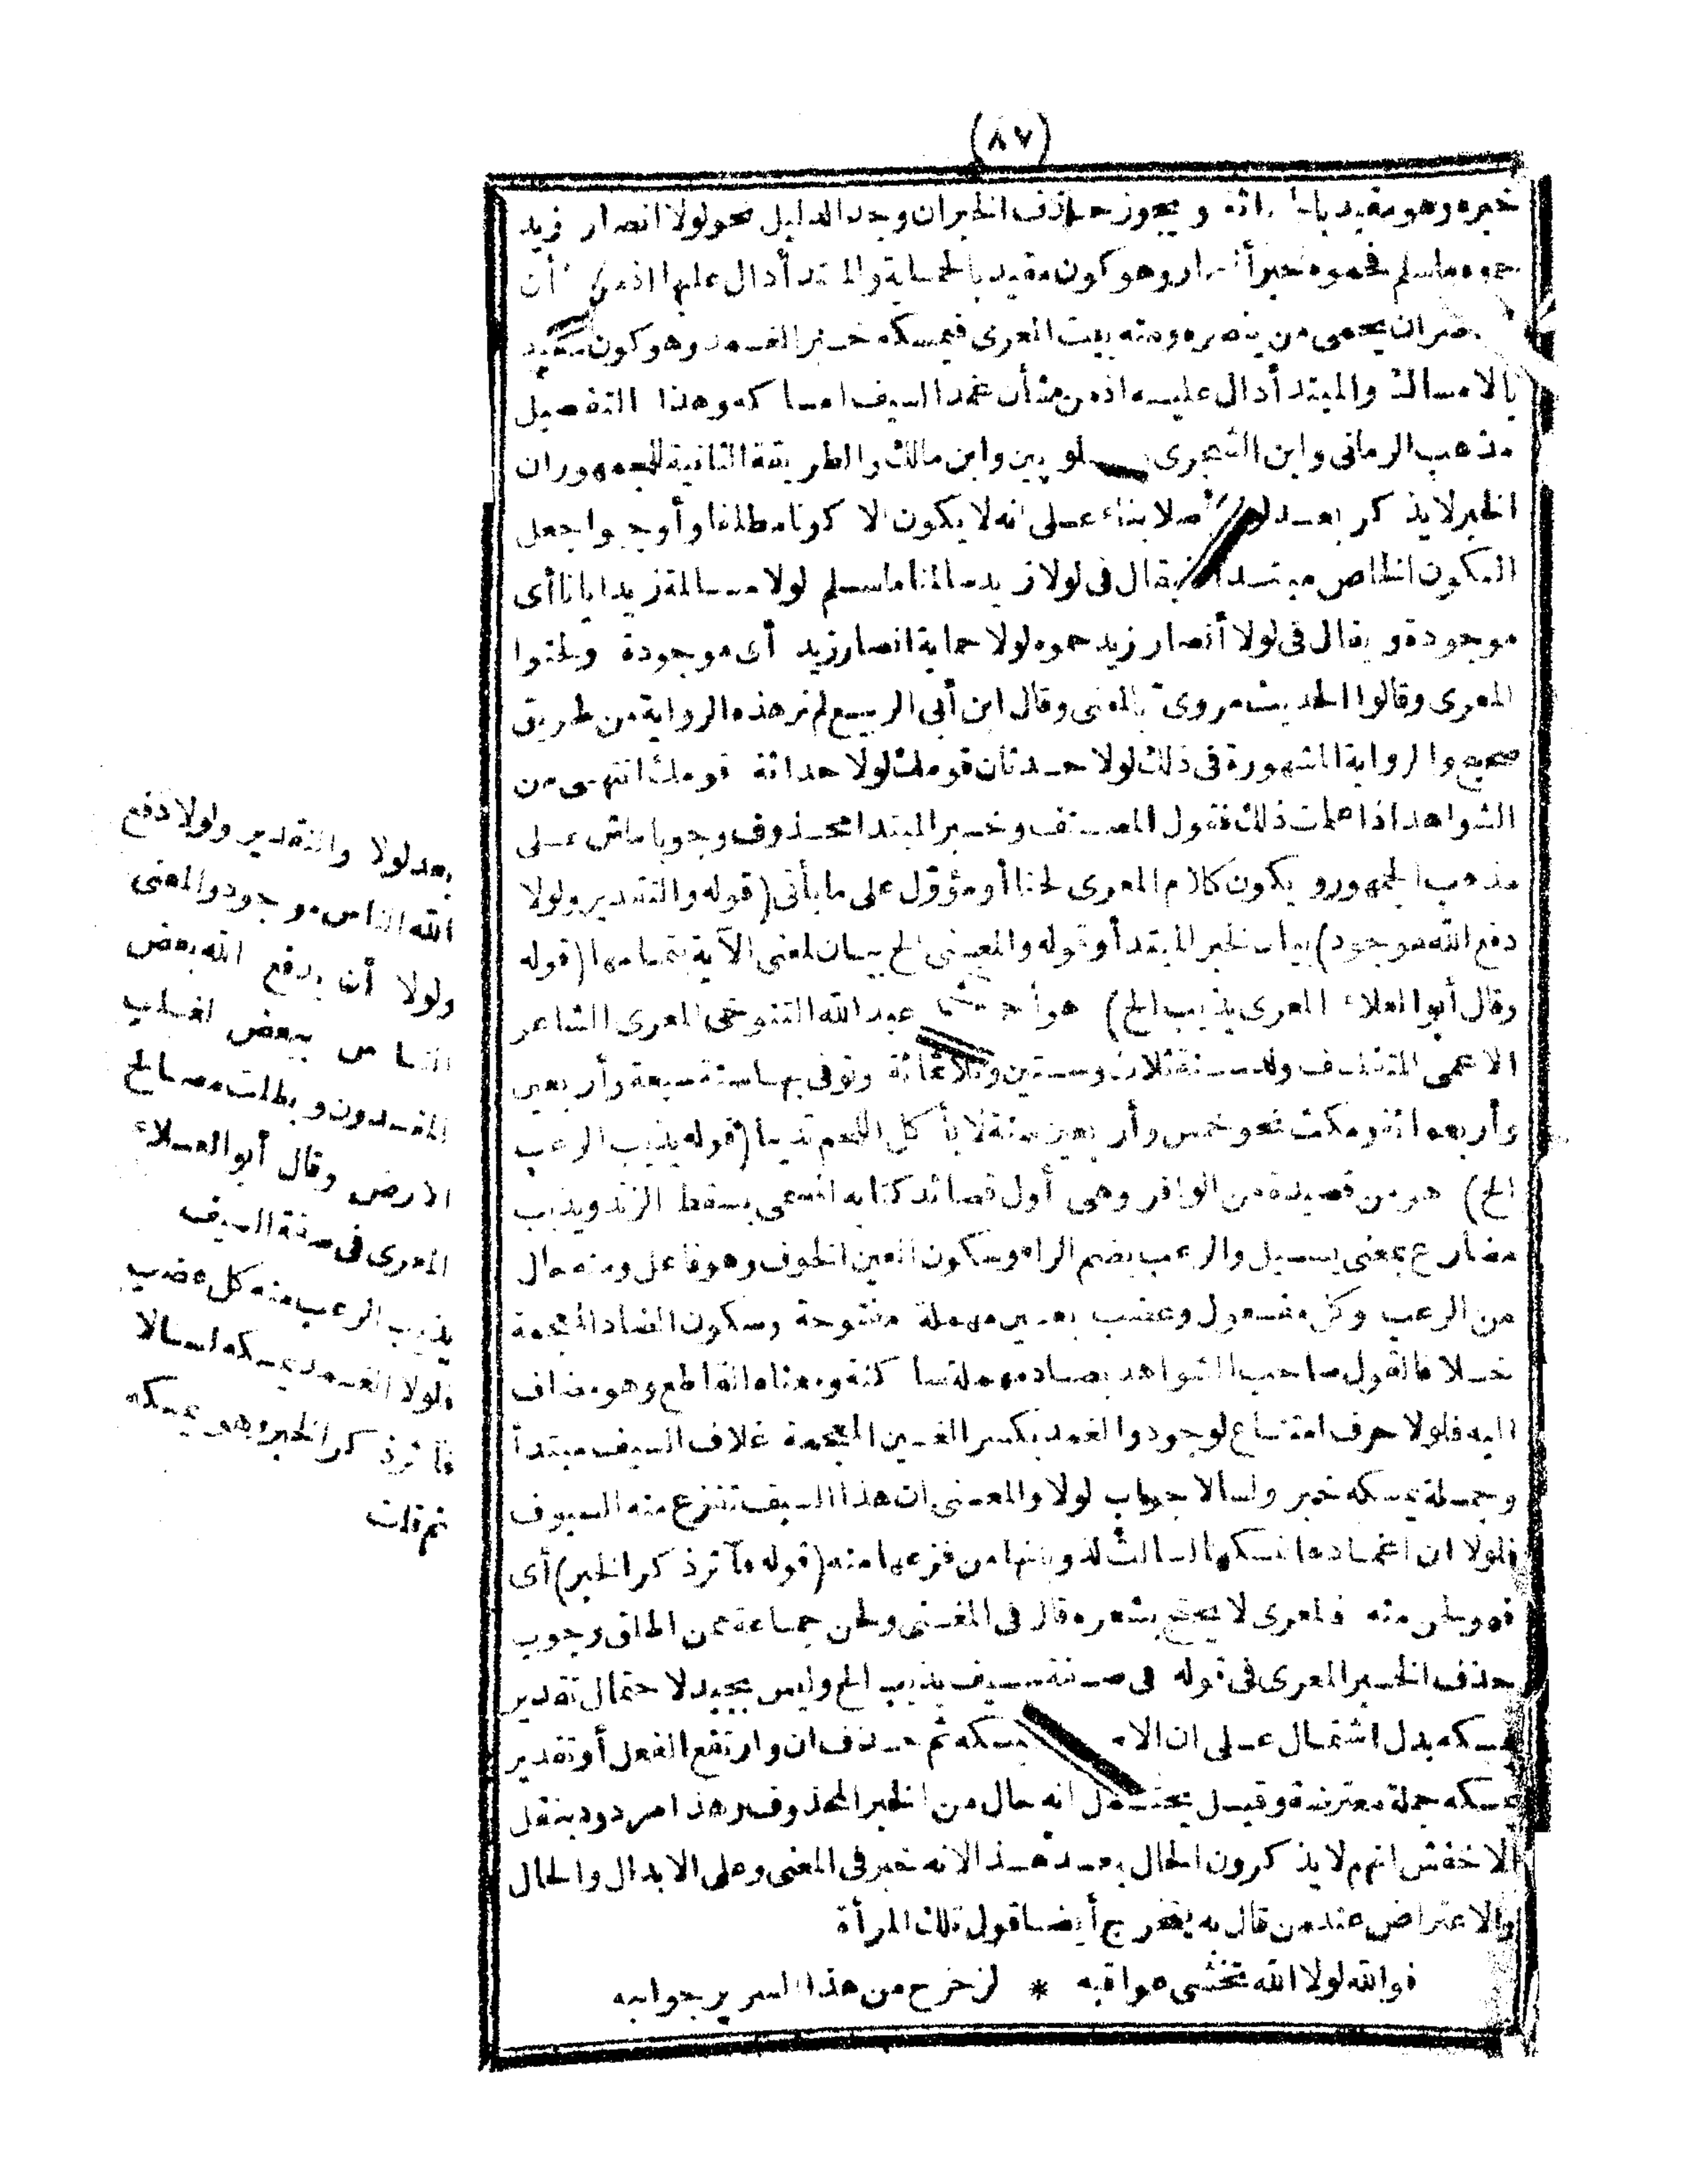 (٨٧)
خبره وهو مقيد ويجوز حذف الخبر ان وجد الدليل نحو لولا انصار زيد
حموه ما سلم فحموه خبر أنصار وهو كون مقيد بالحماية والمبتدأ دال عليها اذ من أن
ان يحمى من ينصره ومنه بيت المعرى فيمسكه خبر الغمد وهو كون مقيد
بالامساك والمبتدأ دال عليه اذ من شأن غمد السيف امساكه وهذا التفصيل
مذهب الرمانى وابن الشجرى لو بين وابن مالك والطريقة الثانية للجمهور ان
الخبر لا يذكر بعد لولا أصلا بناء على انه لا يكون الا كونا مطلقا وأوجبوا جعل
الكون الخاص مبتدأ فيقال فى لولا زيد سالمنا ما سلم لولا مسالمة زيد ايانا أى
موجودة ويقال فى لولا أنصار زيد حموه لولا حماية انصار زيد أى موجودة ولحنوا
المعرى وقالوا الحديث مروى بالمعنى وقال ابن أبى الربيع لم نر هذه الرواية من طريق
صحيح والرواية المشهورة فى ذلك لولا حدثان قومك لولا حداثة قومك انتهى من
الشواهد اذا علمت ذلك فقول المصنف وخبر المبتدا محذوف وجوبا ماش على
مذهب الجمهور ويكون كلام المعرى لحنا أو مؤول على ما يأتى (قوله والتقدير ولولا
دفع الله موجود) بيان لخبر المبتدأ وقوله والمعنى الخ بيان لمعنى الآية بتمامها (قوله
وقال أبو العلاء المعرى يذيب الخ) هو أحمد بن عبد الله التنوخى المعرى الشاعر
الاعمى المتفلسف ولد سنة ثلاث وستين وثلاثمائة وتوفى بها سنة تسعة وأربعين
وأربعمائة ومكث نحو خمس وأربعين سنة لا يأكل اللحم تدينا (قوله يذيب الرعب
الخ) هو من قصيدة من الوافر وهى أول قصائد كتابه المسمى بسقط الزند ويذيب
مضارع بمعنى يسيل والرعب بضم الراء وسكون العين الخوف وهو فاعل ومنه حال
من الرعب وكل مفعول وعضب بعين مهملة مفتوحة وسكون الضاد المعجمة
خلافا لقول صاحب الشواهد بصاد مهملة ساكنة ومعناه القاطع وهو مضاف
اليه فلولا حرف امتناع لوجود والغمد بكسر الغين المعجمة غلاف السيف مبتدأ
وجملة يمسكه خبر ولسالا جواب لولا والمعنى ان هذا السيف تفزع منه السيوف
فلولا ان اغمادها تمسكها لسالت لذوبانها من فزعها منه (قوله فآثر ذكر الخبر) أى
فهو لحن منه فالمعرى لا يحتج بشعره قال فى المغنى ولحن جماعة ممن اطلق وجوب
حذف الخبر المعرى فى قوله فى صفة سيف يذيب الخ وليس بجيد لاحتمال تقدير
يمسكه بدل اشتمال على ان الا يمسكه ثم حذف ان وارتفع الفعل أو تقدير
يمسكه جملة معترضة وقيل يحتمل انه حال من الخبر المحذوف وهذا مردود بنقل
الاخفش انهم لا يذكرون الحال بعدها لانه خبر فى المعنى وعلى الابدال والحال
والاعتراض عند من قال به يتخرج أيضا قول تلك المرأة
فوالله لولا الله تخشى عواقبه * لزحزح من هذا السرير جوانبه
بعد لولا والتقدير ولولا دفع
الله الناس موجود والمعنى
ولولا أن يدفع الله بعض
الناس ببعض لغلب
المفسدون وبطلت مصالح
الارض وقال أبو العلاء
المعرى فى صفة السيف
يذيب الرعب منه كل عضب
فلولا الغمد يمسكه لسالا
فآثر ذكر الخبر وهو يمسكه
ثم قلت